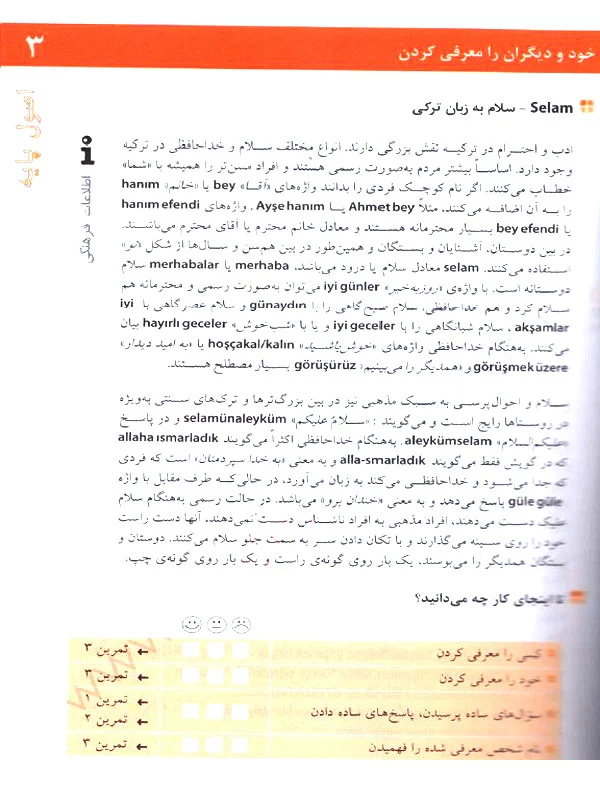 خود و دیگران را معرفی کردن
۳
اصول پایه
اطلاعات فرهنگی
Selam - سلام به زبان ترکی
ادب و احترام در ترکیه نقش بزرگی دارند. انواع مختلف سلام و خداحافظی در ترکیه
وجود دارد. اساساً بیشتر مردم به‌صورت رسمی هستند و افراد مسن‌تر را همیشه با «شما»
خطاب می‌کنند. اگر نام کوچک فردی را بدانند واژه‌های «آقا» bey یا «خانم» hanım
را به آن اضافه می‌کنند، مثلاً Ahmet bey یا Ayşe hanım. واژه‌های hanım efendi
یا bey efendi بسیار محترمانه هستند و معادل خانم محترم یا آقای محترم می‌باشند.
در بین دوستان، آشنایان و بستگان و همین‌طور در بین هم‌سن و سال‌ها از شکل «تو»
استفاده می‌کنند. selam معادل سلام یا درود می‌باشد. merhaba یا merhabalar سلام
دوستانه است. با واژه‌ی «روز به خیر» iyi günler می‌توان به‌صورت رسمی و محترمانه هم
سلام کرد و هم خداحافظی، سلام صبح‌گاهی را با günaydın و سلام عصرگاهی با iyi
akşamlar، سلام شبانگاهی را با iyi geceler و یا با «شب خوش» hayırlı geceler بیان
می‌کنند. به‌هنگام خداحافظی واژه‌های «خوش باشید» hoşçakal/kalın یا «به امید دیدار»
görüşmek üzere و «همدیگر را می‌بینیم» görüşürüz بسیار مصطلح هستند.
سلام و احوال‌پرسی به سبک مذهبی نیز در بین بزرگ‌ترها و ترک‌های سنتی به‌ویژه
در روستاها رایج است و می‌گویند: «سلامٌ علیکم» selamünaleyküm و در پاسخ
«علیکم السلام» aleykümselam. به‌هنگام خداحافظی اکثراً می‌گویند allaha ısmarladık
که در گویش فقط می‌گویند alla-smarladık و به معنی «به خدا سپردمتان» است که فردی
که جدا می‌شود و خداحافظی می‌کند به زبان می‌آورد، در حالی‌که طرف مقابل با واژه
güle güle پاسخ می‌دهد و به معنی «خندان برو» می‌باشد. در حالت رسمی به‌هنگام سلام
علیک دست می‌دهند، افراد مذهبی به افراد ناشناس دست نمی‌دهند، آنها دست راست
خود را روی سینه می‌گذارند و با تکان دادن سر به سمت جلو سلام می‌کنند. دوستان و
بستگان همدیگر را می‌بوسند، یک بار روی گونه‌ی راست و یک بار روی گونه‌ی چپ.
تا اینجای کار چه می‌دانید؟
کسی را معرفی کردن ← تمرین ۳
خود را معرفی کردن ← تمرین ۳
سؤال‌های ساده پرسیدن، پاسخ‌های ساده دادن ← تمرین ۱
← تمرین ۲
نام شخص معرفی شده را فهمیدن ← تمرین ۳